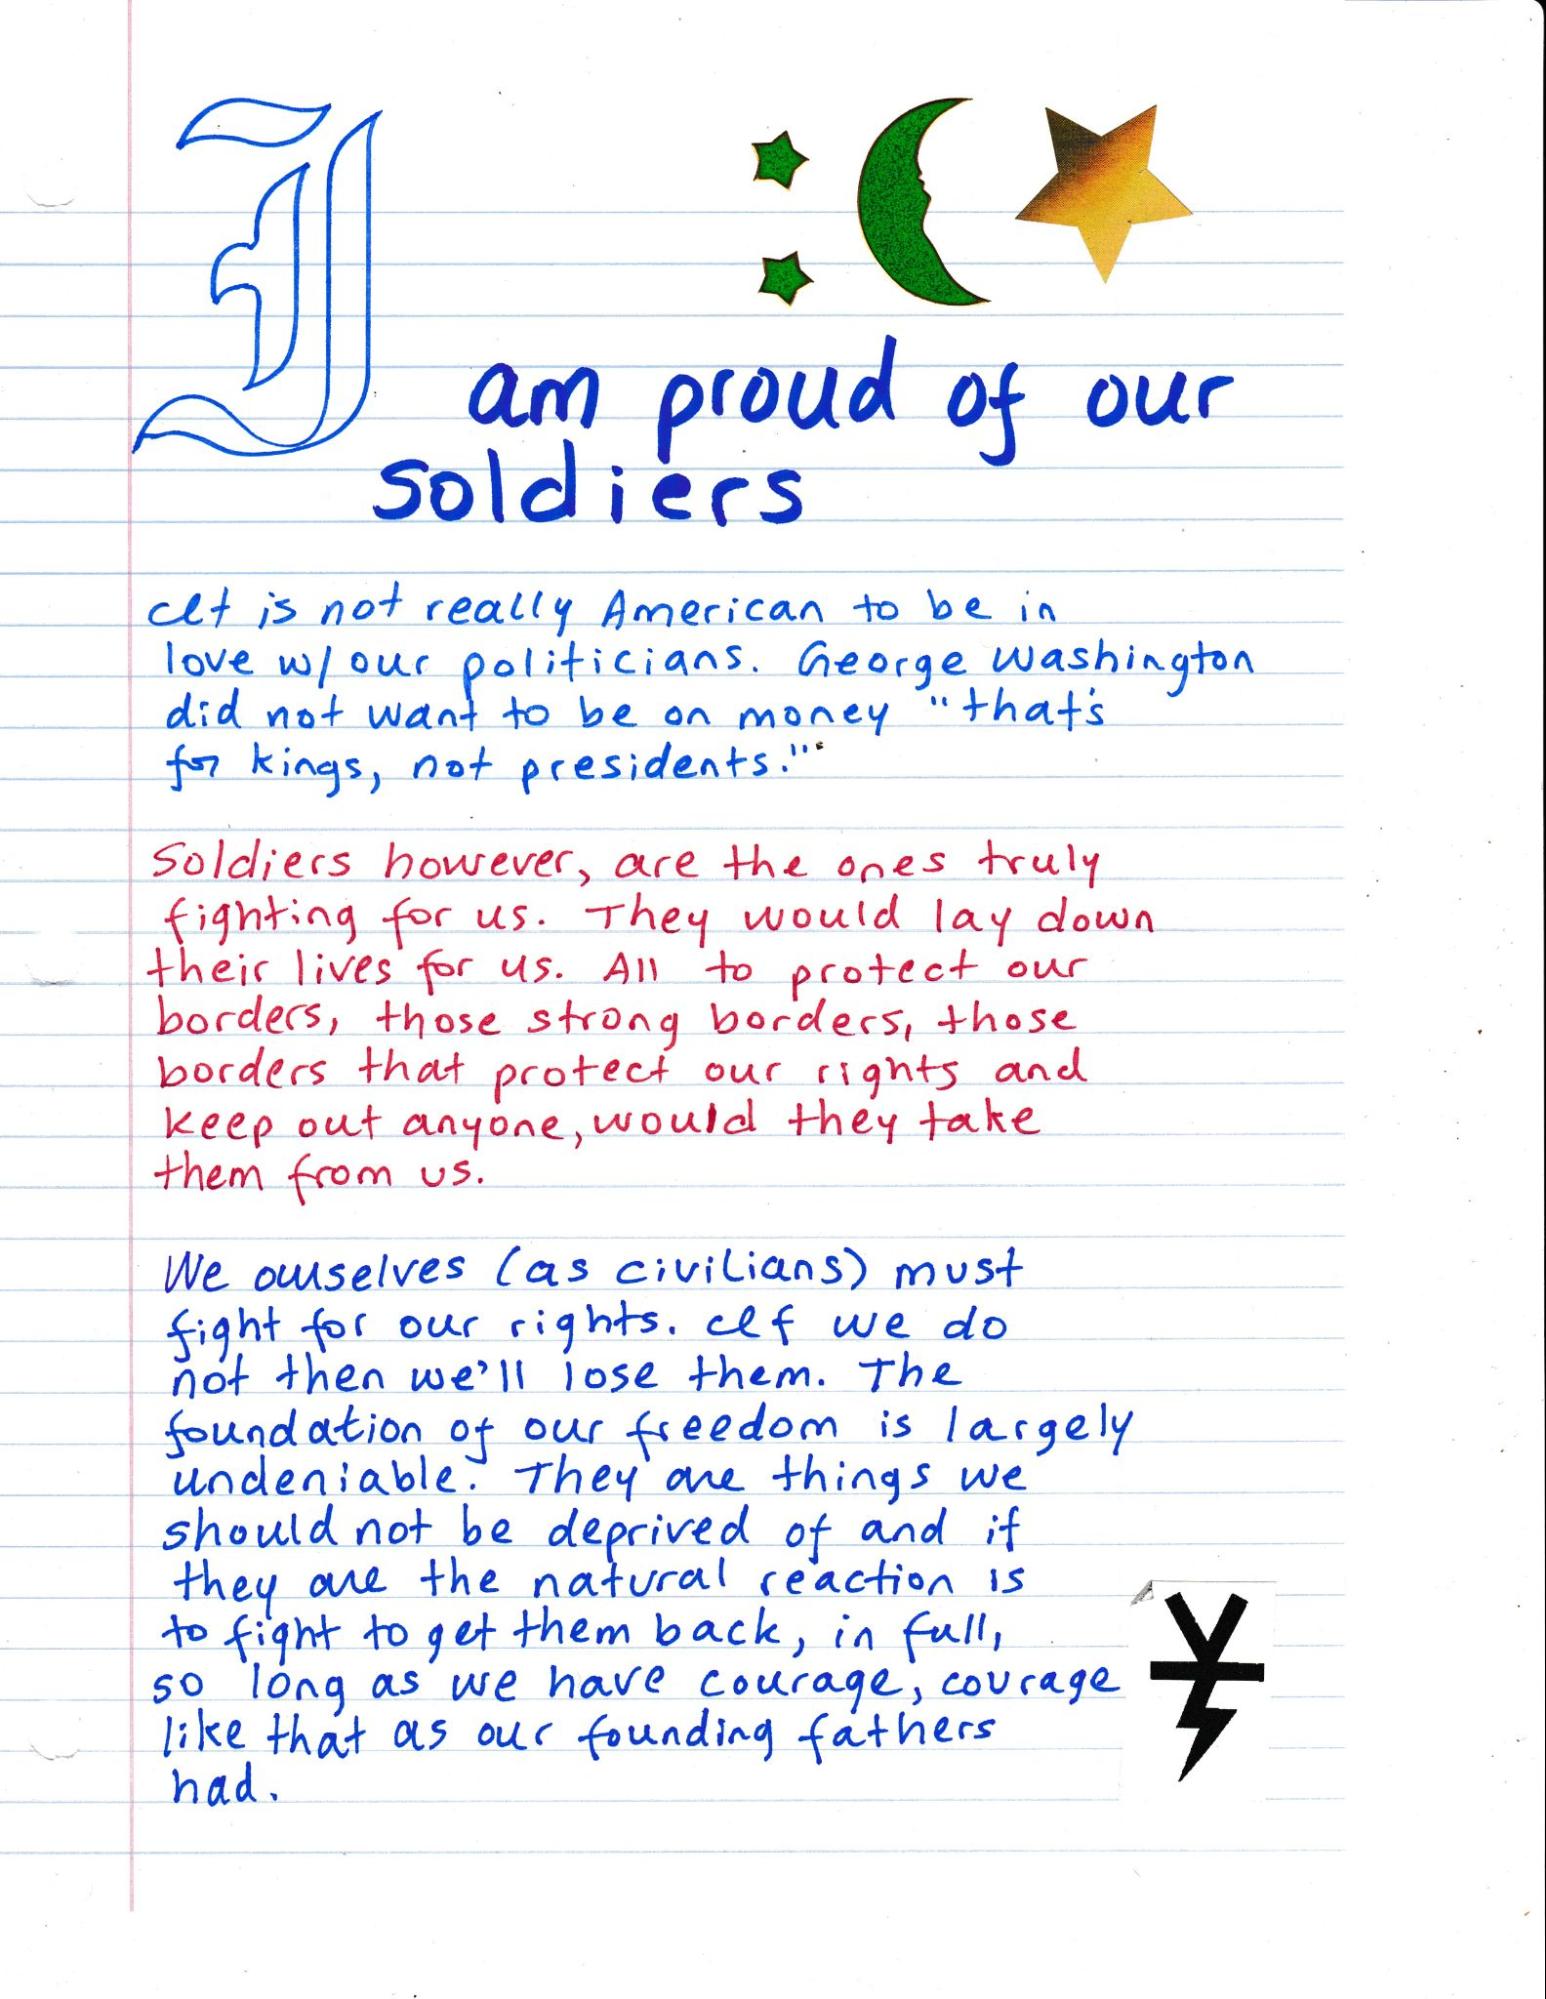 I am proud of our
soldiers
It is not really American to be in
love w/ our politicians. George Washington
did not want to be on money "that's
for kings, not presidents."
Soldiers however, are the ones truly
fighting for us. They would lay down
their lives for us. All to protect our
borders, those strong borders, those
borders that protect our rights and
keep out anyone, would they take
them from us.
We ourselves (as civilians) must
fight for our rights. If we do
not then we'll lose them. The
foundation of our freedom is largely
undeniable. They are things we
should not be deprived of and if
they are the natural reaction is
to fight to get them back, in full,
so long as we have courage, courage
like that as our founding fathers
had.